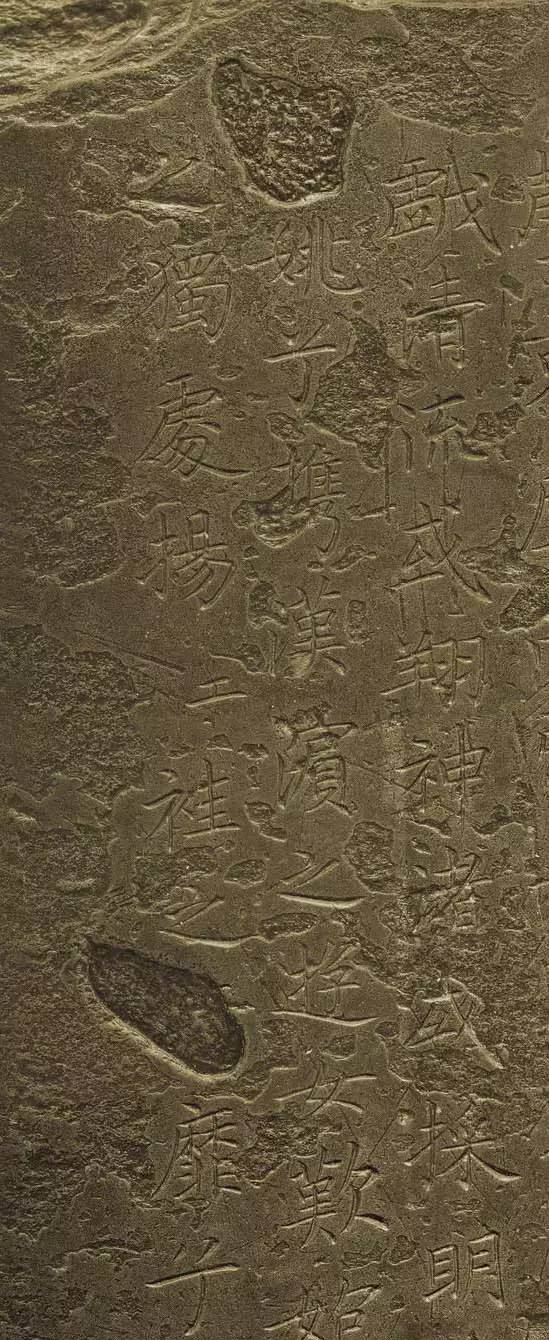 戲清流或翔神渚或採明
姚兮攜漢濱之遊女歎
之獨處揚袿之靡兮